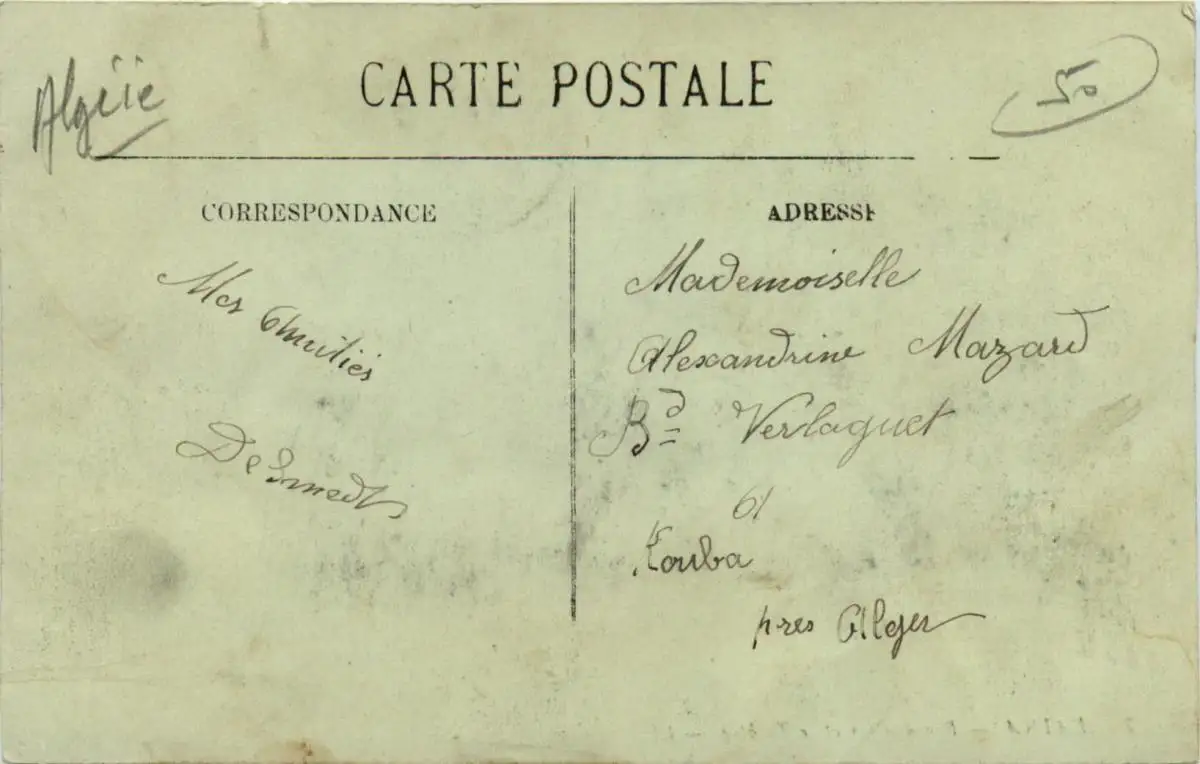 Algérie
CARTE POSTALE
50
CORRESPONDANCE
ADRESSE
Mes Amitiés
De Smedt
Mademoiselle
Alexandrine Mazard
Bd Verlaguet
61
Kouba
pres Alger